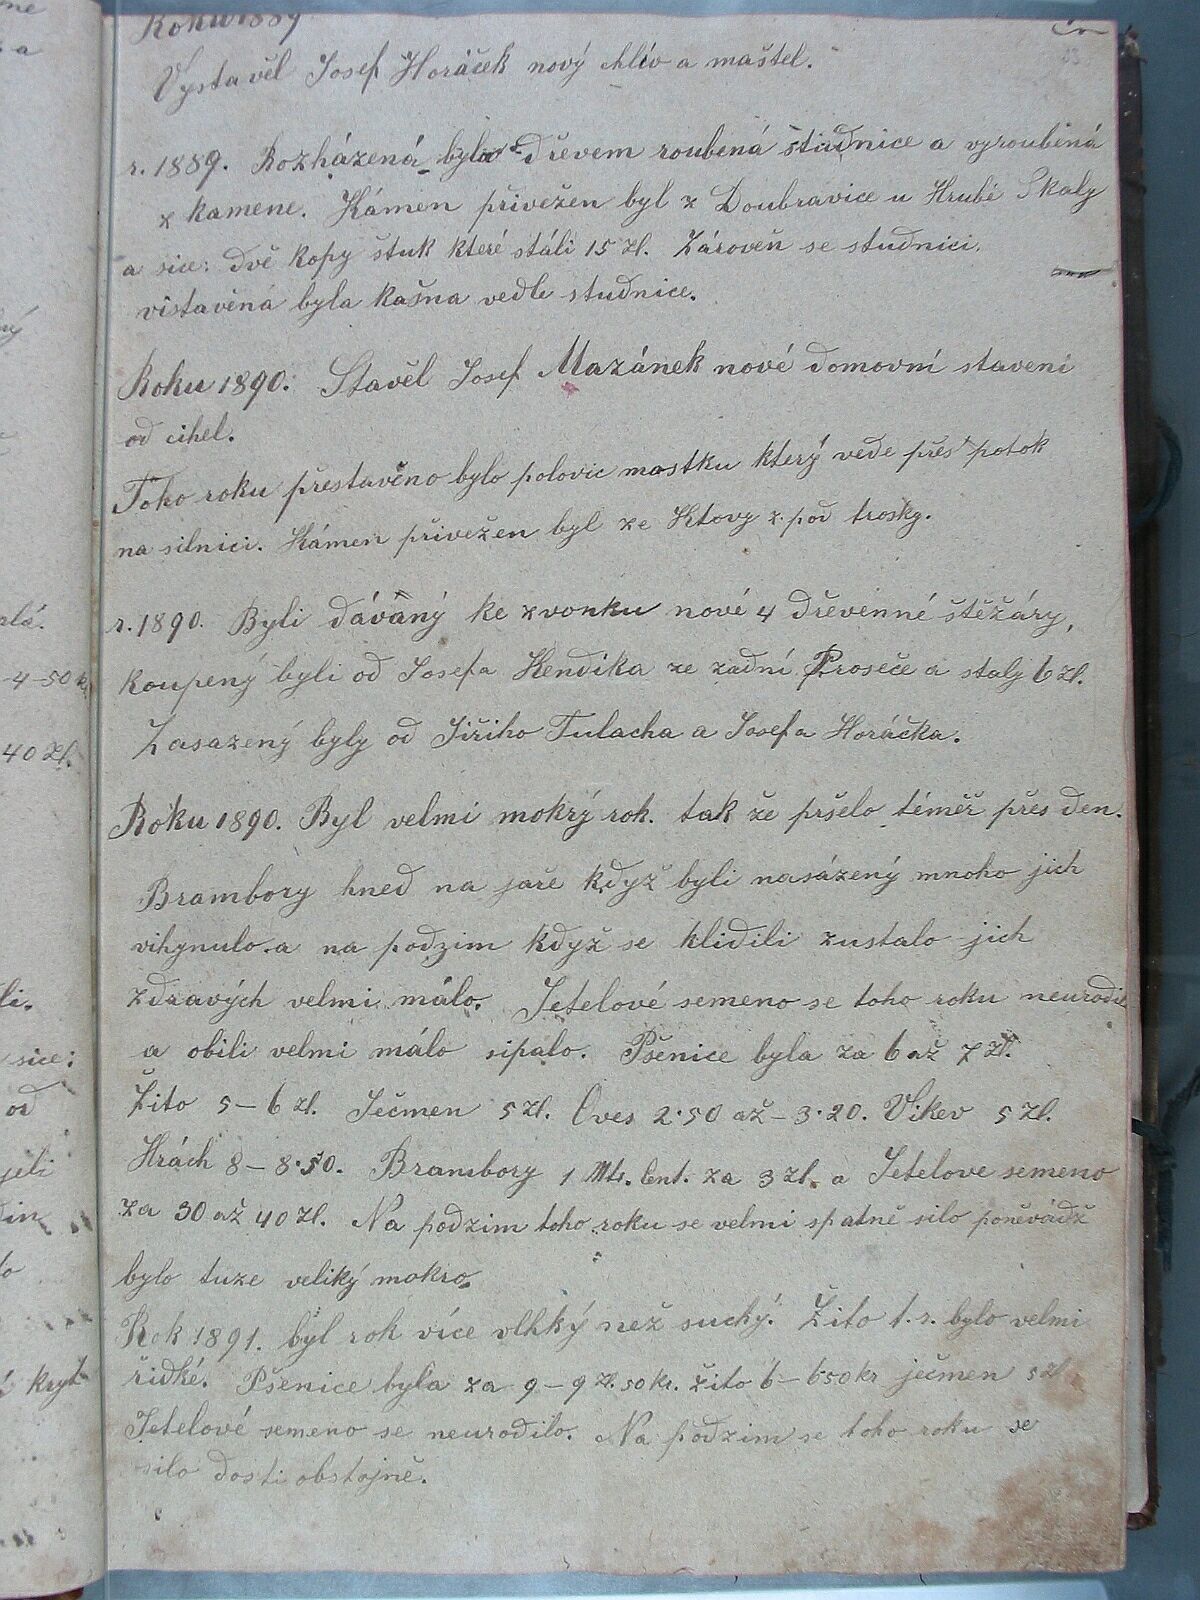 Roku 1889
Vystavěl Josef Horáček nový chlív a maštel.
r. 1889. Rozházená byla dřevem roubená studnice a vyroubená
z kamene. Kámen přivežen byl z Doubravice u Hrubé Skaly
a sice: dvě kopy štuk které stáli 15 zl. Zároveň se studnici
vistavěná byla kašna vedle studnice.
Roku 1890. Stavěl Josef Mazánek nové domovní stavení
od cihel.
Toho roku přestavěno bylo polovic mostku který vede přes potok
na silnici. Kámen přivežen byl ze Ktovy z pod trosky.
r. 1890. Byli dávány ke zvonku nové 4 dřevenné štěžáry,
koupený byli od Josefa Kendika ze zadní Proseče a staly 6 zl.
Zasazený byly od Jiřiho Tulacha a Josefa Horáčka.
Roku 1890. Byl velmi mokrý rok. tak že pršelo téměř přes den.
Brambory hned na jaře když byli nasázený mnoho jich
vihynulo. a na podzim když se klidili zustalo jich
zdravých velmi málo. Jetelové semeno se toho roku neurodil
a obili velmi málo sipalo. Pšenice byla za 6 až 7 zl.
Žito 5 – 6 zl. Ječmen 5 zl. Oves 2·50 až – 3·20. Vikev 5 zl.
Hrách 8 – 8·50. Brambory 1 Mtr. Cent. za 3 zl. a Jetelove semeno
za 30 až 40 zl. Na podzim toho roku se velmi spatně silo poněvádž
bylo tuze veliký mokro.
Rok 1891. byl rok více vlhký než suchý. Žito t. r. bylo velmi
řidké. Pšenice byla za 9 – 9 zl. 50 kr. žito 6 – 6 50 kr ječmen 5 zl
Jetelové semeno se neurodilo. Na podzim se toho roku se
silo dosti obstojně.
4–50
40 zl.
sice:
od
kryt